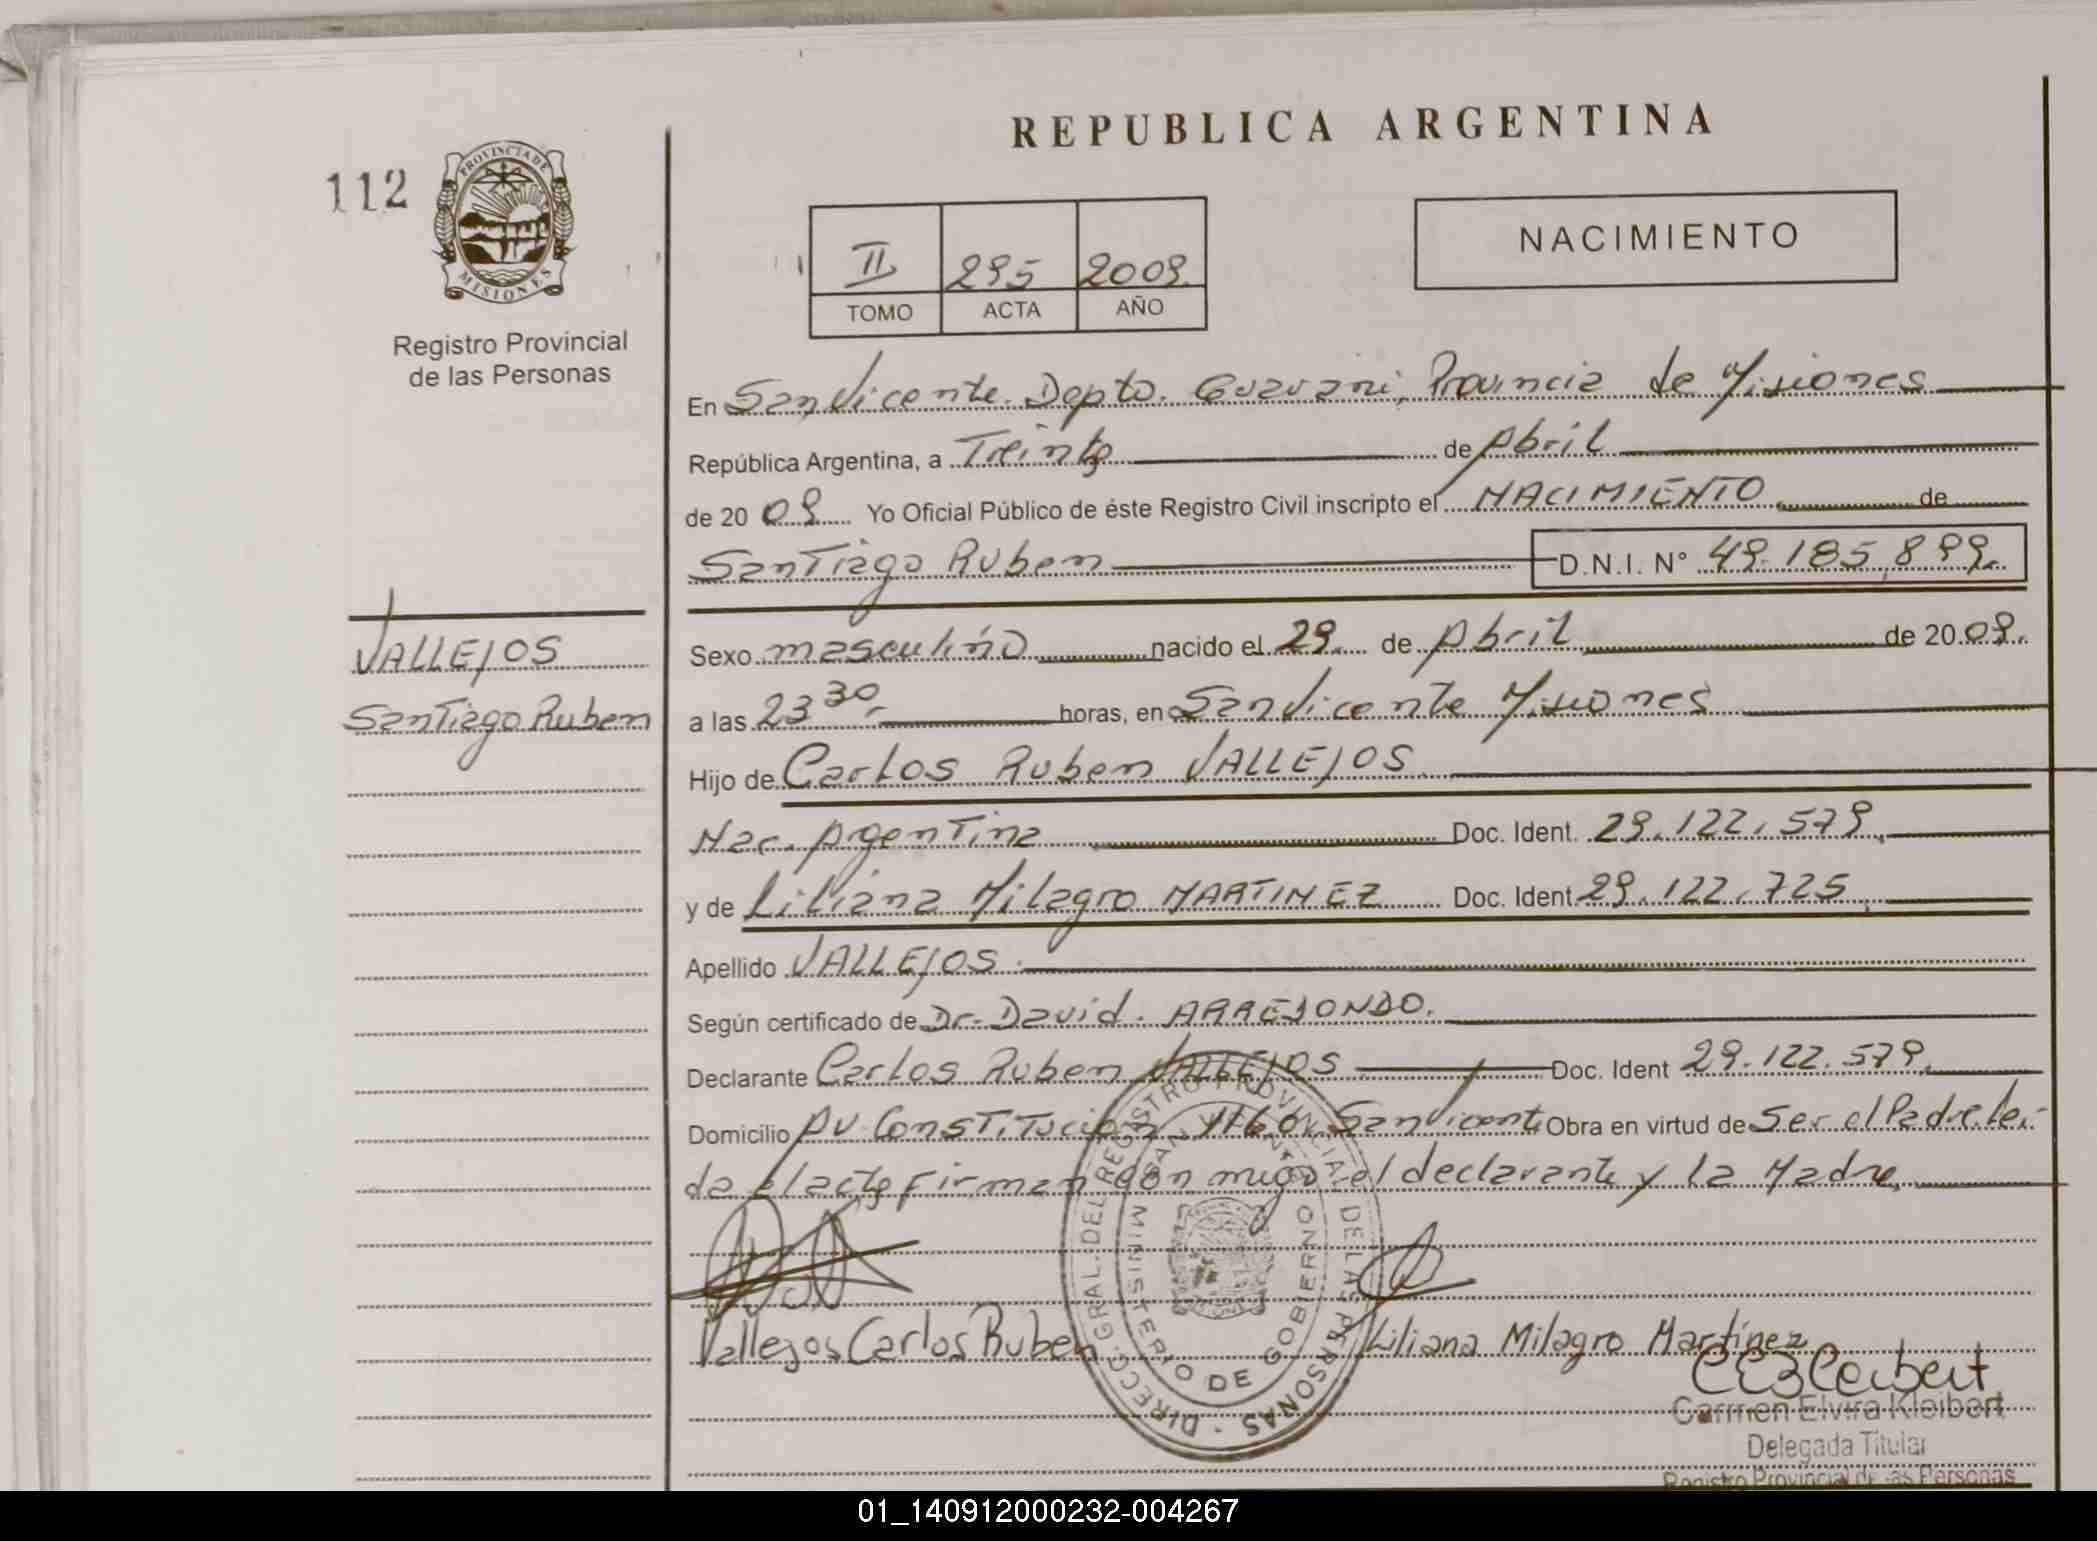 REPUBLICA ARGENTINA
112
PROVINCIA DE
MISIONES
Registro Provincial
de las Personas
II 295 2009.
TOMO ACTA AÑO
NACIMIENTO
En San Vicente. Depto. Guarani, Provincia de Misiones
República Argentina, a Treinta de Abril
de 20 09 Yo Oficial Público de éste Registro Civil inscripto el NACIMIENTO de
Santiago Ruben D.N.I. N° 49.185.899.
VALLEJOS
Santiago Ruben
Sexo masculino nacido el 29. de Abril de 20 09.
a las 23 30. horas, en San Vicente Misiones
Hijo de Carlos Ruben VALLEJOS
Nac. Argentina Doc. Ident. 29.122.579.
y de Liliana Milagro MARTINEZ Doc. Ident 29.122.725
Apellido VALLEJOS.
Según certificado de Dr. David. ARREDONDO.
Declarante Carlos Ruben VALLEJOS Doc. Ident 29.122.579.
Domicilio AV. Constitución 1160. San Vicente Obra en virtud de Ser el Padre. Lei-
da el acta firman con migo el declarante y la Madre.
DIRECC. GRAL. DEL REGISTRO PROVINCIAL DE LAS PERSONAS
MINISTERIO DE GOBIERNO
Vallejos Carlos Ruben
Liliana Milagro Martinez
Carmen Elvira Kleibert
Delegada Titular
Registro Provincial de las Personas
01_140912000232-004267